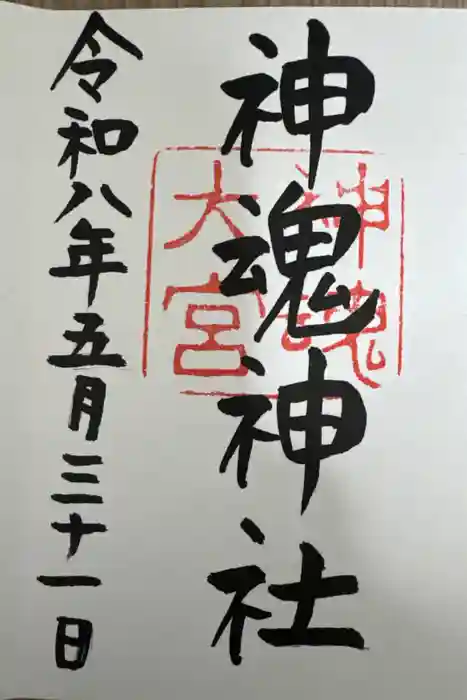 神魂神社
神魂
大宮
令和八年五月三十一日